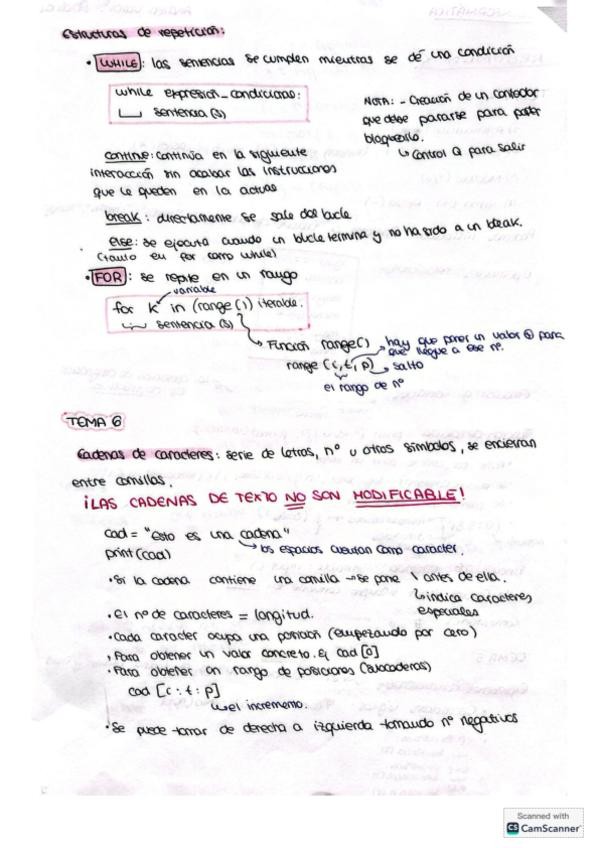 Estructuras de repetición:
• WHILE: las sentencias se cumplen mientras se dé una condición
while expresión_condicional:
sentencia(s)
NOTA: - Creación de un contador
que debe pararse para poder
bloquearlo.
↳ Control Q para salir
continue: continúa en la siguiente
interacción sin acabar las instrucciones
que le queden en la actual
break: directamente se sale del bucle
else: se ejecuta cuando un bucle termina y no ha sido a un break.
(tanto en for como while)
• FOR: se repite en un rango
variable
for K in (range()) iterable.
sentencia(s)
Función range()
hay que poner un valor para
que llegue a ese nº.
range (i, t, p) → salto
el rango de nº
TEMA 6
Cadenas de caracteres: serie de letras, nº u otros símbolos, se encierran
entre comillas.
¡LAS CADENAS DE TEXTO NO SON MODIFICABLE!
cad = "esto es una cadena"
print(cad)
↳ los espacios cuentan como caracter.
• Si la cadena contiene una comilla → se pone \ antes de ella.
↳ indica caracteres
especiales
• El nº de caracteres = longitud.
• Cada caracter ocupa una posición (empezando por cero)
• Para obtener un valor concreto. Ej cad[0]
• Para obtener un rango de posiciones
cad [i : t : p]
↳ el incremento.
• Se puede tomar de derecha a izquierda tomando nº negativos
Scanned with
CS CamScanner